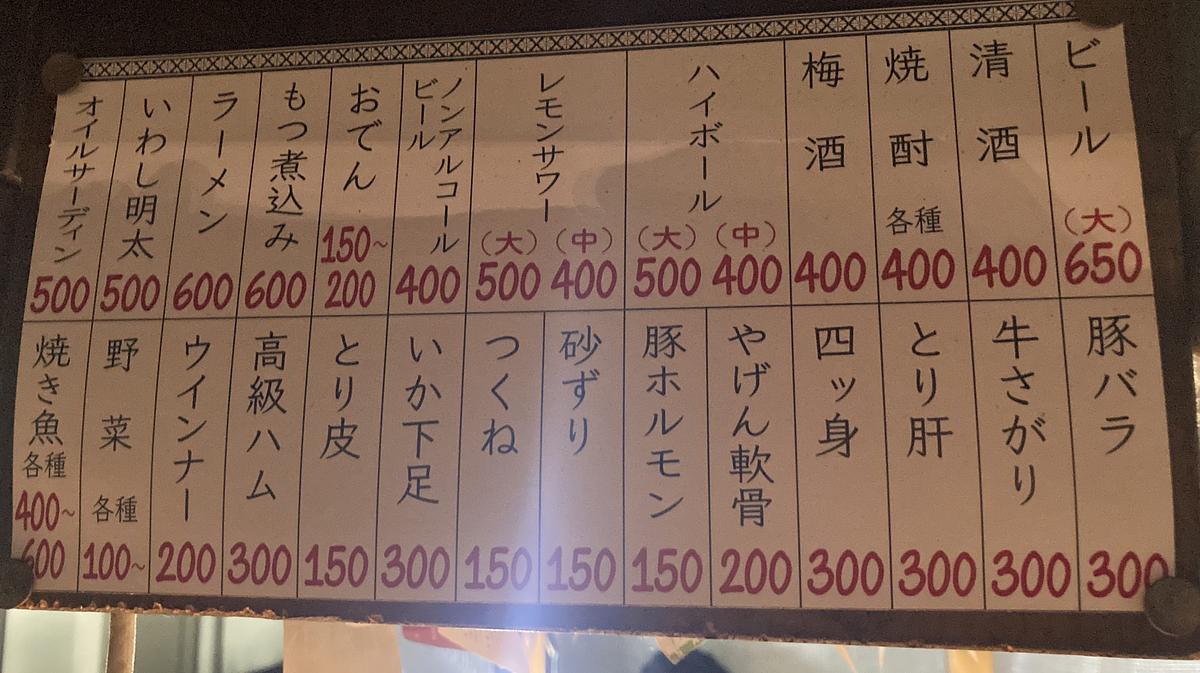 ビール
（大）
650
清酒
400
焼酎
各種
400
梅酒
400
ハイボール
（中）
400
（大）
500
レモンサワー
（中）
400
（大）
500
ノンアルコール
ビール
400
おでん
150~
200
もつ煮込み
600
ラーメン
600
いわし明太
500
オイルサーディン
500
豚バラ
300
牛さがり
300
とり肝
300
四ッ身
300
やげん軟骨
200
豚ホルモン
150
砂ずり
150
つくね
150
いか下足
300
とり皮
150
高級ハム
300
ウインナー
200
野菜
各種
100~
焼き魚
各種
400~
600